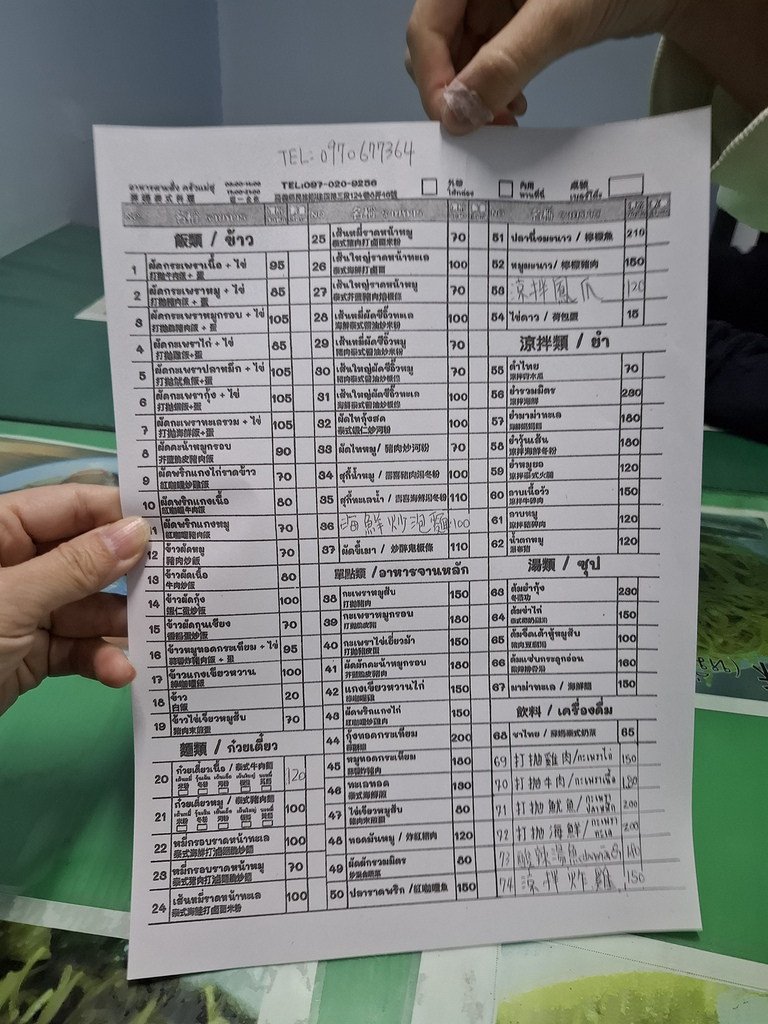 TEL: 0970677364
TEL:097-020-9256
飯類 / ข้าว
1 ผัดกระเพราเนื้อ + ไข่ 95
打拋牛肉飯 + 蛋
2 ผัดกระเพราหมู + ไข่ 85
打拋豬肉飯 + 蛋
3 ผัดกระเพราหมูกรอบ + ไข่ 105
4 ผัดกระเพราไก่ + ไข่ 85
打拋雞飯+蛋
5 ผัดกระเพราปลาหมึก + ไข่ 105
打拋魷魚飯+蛋
6 ผัดกระเพรากุ้ง + ไข่ 105
打拋蝦飯+蛋
7 ผัดกะเพราทะเลรวม + ไข่ 105
打拋海鮮飯+蛋
8 ผัดคะน้าหมูกรอบ 90
芥蘭脆皮豬肉飯
9 ผัดพริกแกงไก่ราดข้าว 70
紅咖哩炒雞飯
10 ผัดพริกแกงเนื้อ 80
紅咖哩牛肉飯
11 ผัดพริกแกงหมู 70
紅咖哩豬肉飯
12 ข้าวผัดหมู 70
豬肉炒飯
13 ข้าวผัดเนื้อ 80
牛肉炒飯
14 ข้าวผัดกุ้ง 100
蝦仁蛋炒飯
15 ข้าวผัดกุนเชียง 70
香腸蛋炒飯
16 ข้าวหมูทอดกระเทียม + ไข่ 95
17 ข้าวแกงเขียวหวาน 100
綠咖哩飯
18 ข้าว 20
白飯
19 ข้าวไข่เจียวหมูสับ 70
豬肉末煎蛋
麵類 / ก๋วยเตี๋ยว
20 ก๋วยเตี๋ยวเนื้อ / 泰式牛肉麵 120
21 ก๋วยเตี๋ยวหมู / 泰式豬肉麵 100
22 หมี่กรอบราดหน้าทะเล 100
23 หมี่กรอบราดหน้าหมู 70
24 เส้นหมี่ราดหน้าทะเล 100
泰式海鮮打滷面米粉
25 เส้นหมี่ราดหน้าหมู 70
泰式豬肉打滷面米粉
26 เส้นใหญ่ราดหน้าทะเล 100
泰式海鮮打滷面
27 เส้นใหญ่ราดหน้าหมู 70
泰式芥蘭豬肉燴粄條
28 เส้นหมี่ผัดซีอิ๊วทะเล 100
海鮮泰式醬油炒米粉
29 เส้นหมี่ผัดซีอิ๊วหมู 70
豬肉泰式醬油炒米粉
30 เส้นใหญ่ผัดซีอิ๊วหมู 70
豬肉泰式醬油炒粄條
31 เส้นใหญ่ผัดซีอิ๊วทะเล 100
海鮮泰式醬油炒粄條
32 ผัดไทกุ้งสด 100
泰式蝦仁炒河粉
33 ผัดไทหมู/ 豬肉炒河粉 70
34 สุกี้น้ำหมู / 壽喜豬肉湯冬粉 100
35 สุกี้ทะเลน้ำ / 壽喜海鮮湯冬粉 110
36 海鮮炒泡麵 100
37 ผัดขี้เมา / 炒醉鬼粄條 110
單點類 /อาหารจานหลัก
38 กะเพราหมูสับ 150
打拋豬肉
39 กะเพราหมูกรอบ 180
打拋脆皮豬
40 กะเพราไข่เยี่ยวม้า 150
打拋皮蛋
41 ผัดผักคะน้าหมูกรอบ 180
芥蘭脆皮豬肉
42 แกงเขียวหวานไก่ 150
綠咖哩雞
43 ผัดพริกแกงไก่ 150
紅咖哩炒雞肉
44 กุ้งทอดกระเทียม 200
45 หมูทอดกระเทียม 180
46 ทะเลทอด 180
47 ไข่เจียวหมูสับ 80
豬肉末煎蛋
48 ทอดมันหมู / 炸紅豬肉 120
49 ผัดผักรวมมิตร 80
50 ปลาราดพริก /紅咖哩魚 150
51 ปลานึ่งมะนาว / 檸檬魚 210
52 หมูมะนาว/ 檸檬豬肉 150
53 涼拌鳳爪 120
54 ไข่ดาว / 荷包蛋 15
涼拌類 / ยำ
55 ตำไทย 70
涼拌青木瓜
56 ยำรวมมิตร 280
涼拌海鮮
57 ยำมาม่าทะเล 180
58 ยำวุ้นเส้น 180
涼拌海鮮冬粉
59 ยำหมูยอ 120
涼拌泰式火腿
60 ลาบเนื้อวัว 150
涼拌牛碎肉
61 ลาบหมู 120
涼拌豬碎肉
62 น้ำตกหมู 120
湯類 / ซุป
63 ต้มยำกุ้ง 280
冬蔭功
64 ต้มข่าไก่ 150
65 ต้มจืดเต้าหู้หมูสับ 100
豬肉豆腐湯
66 ต้มแซบกระดูกอ่อน 160
67 มาม่าทะเล / 海鮮麵 150
飲料 / เครื่องดื่ม
68 ชาไทย / 泰式奶茶 65
69 打拋雞肉/กะเพราไก่ 150
70 打拋牛肉/กะเพราเนื้อ 180
71 打拋魷魚/กะเพรา 200
72 打拋海鮮/กะเพรา ทะเล 200
73 酸辣湯魚
74 涼拌炸雞 150